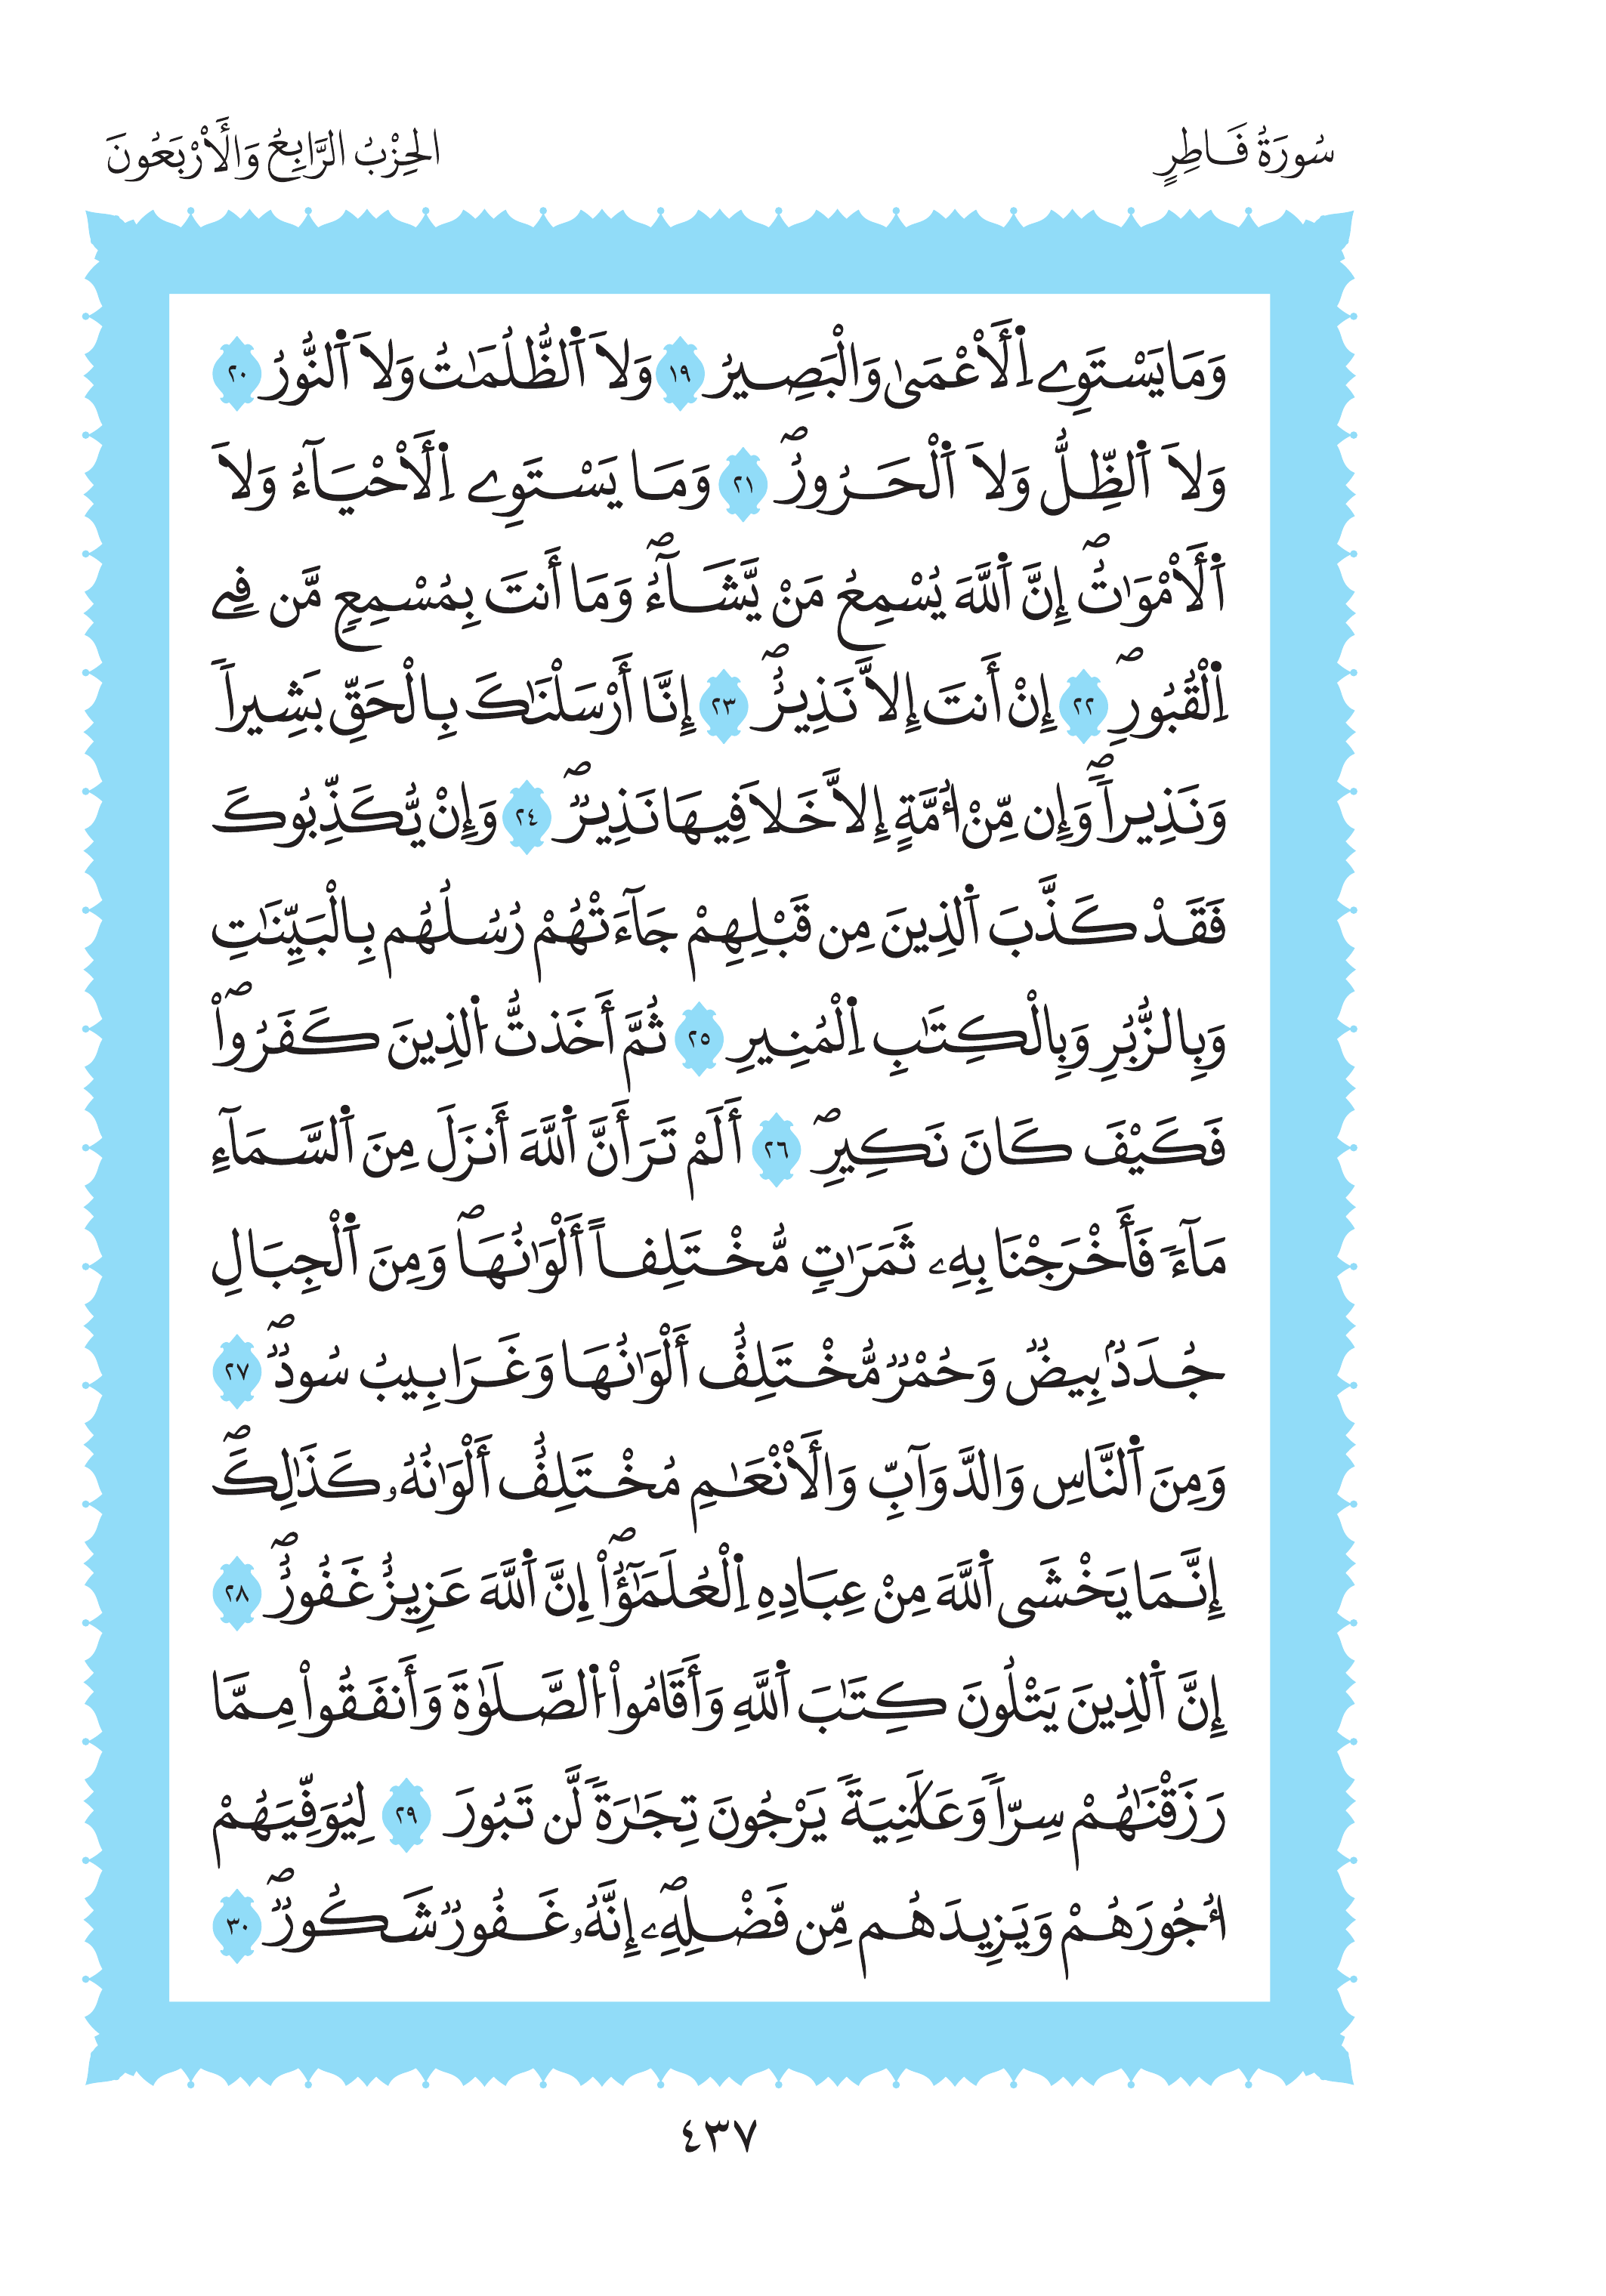 سُورَةُ فَاطِرٍ
الحِزْبُ الرَّابِعُ وَالْأَرْبَعُونَ
وَمَا يَسْتَوِے اِ۬لْأَعْمَىٰ وَالْبَصِيرُ ١٩ وَلَا اَ۬لظُّلُمَٰتُ وَلَا اَ۬لنُّورُ ٢٠
وَلَا اَ۬لظِّلُّ وَلَا اَ۬لْحَرُورُۖ ٢١ وَمَا يَسْتَوِے اِ۬لْأَحْيَآءُ وَلَا
اَ۬لْأَمْوَٰتُۖ إِنَّ اَ۬للَّهَ يُسْمِعُ مَنْ يَّشَآءُۖ وَمَا أَنتَ بِمُسْمِعٍ مَّن فِے
اِ۬لْقُبُورِۖ ٢٢ إِنْ أَنتَ إِلَّا نَذِيرٌۖ ٢٣ إِنَّا أَرْسَلْنَٰكَ بِالْحَقِّ بَشِيراً
وَنَذِيراًۖ وَإِن مِّنْ أُمَّةٍ إِلَّا خَلَا فِيهَا نَذِيرٌۖ ٢٤ وَإِنْ يُّكَذِّبُوكَ
فَقَدْ كَذَّبَ اَ۬لذِينَ مِن قَبْلِهِمْ جَآءَتْهُمْ رُسُلُهُم بِالْبَيِّنَٰتِ
وَبِالزُّبُرِ وَبِالْكِتَٰبِ اِ۬لْمُنِيرِ ٢٥ ثُمَّ أَخَذتُّ اُ۬لذِينَ كَفَرُواْۖ
فَكَيْفَ كَانَ نَكِيرِۖ ٢٦ أَلَمْ تَرَ أَنَّ اَ۬للَّهَ أَنزَلَ مِنَ اَ۬لسَّمَآءِ
مَآءً فَأَخْرَجْنَا بِهِۦ ثَمَرَٰتٍ مُّخْتَلِفاً أَلْوَٰنُهَاۖ وَمِنَ اَ۬لْجِبَالِ
جُدَدٌۢ بِيضٌ وَحُمْرٌ مُّخْتَلِفٌ أَلْوَٰنُهَا وَغَرَابِيبُ سُودٌۖ ٢٧
وَمِنَ اَ۬لنَّاسِ وَالدَّوَآبِّ وَالْأَنْعَٰمِ مُخْتَلِفٌ أَلْوَٰنُهُۥ كَذَٰلِكَۖ
إِنَّمَا يَخْشَى اَ۬للَّهَ مِنْ عِبَادِهِ اِ۬لْعُلَمَٰٓؤُاْۖ اِ۪نَّ اَ۬للَّهَ عَزِيزٌ غَفُورٌۖ ٢٨
إِنَّ اَ۬لذِينَ يَتْلُونَ كِتَٰبَ اَ۬للَّهِ وَأَقَامُواْ اُ۬لصَّلَوٰةَ وَأَنفَقُواْ مِمَّا
رَزَقْنَٰهُمْ سِرّاً وَعَلَٰنِيَةً يَرْجُونَ تِجَٰرَةً لَّن تَبُورَ ٢٩ لِيُوَفِّيَهُمْ
أُجُورَهُمْ وَيَزِيدَهُم مِّن فَضْلِهِۦۖ إِنَّهُۥ غَفُورٌ شَكُورٌۖ ٣٠
٤٣٧